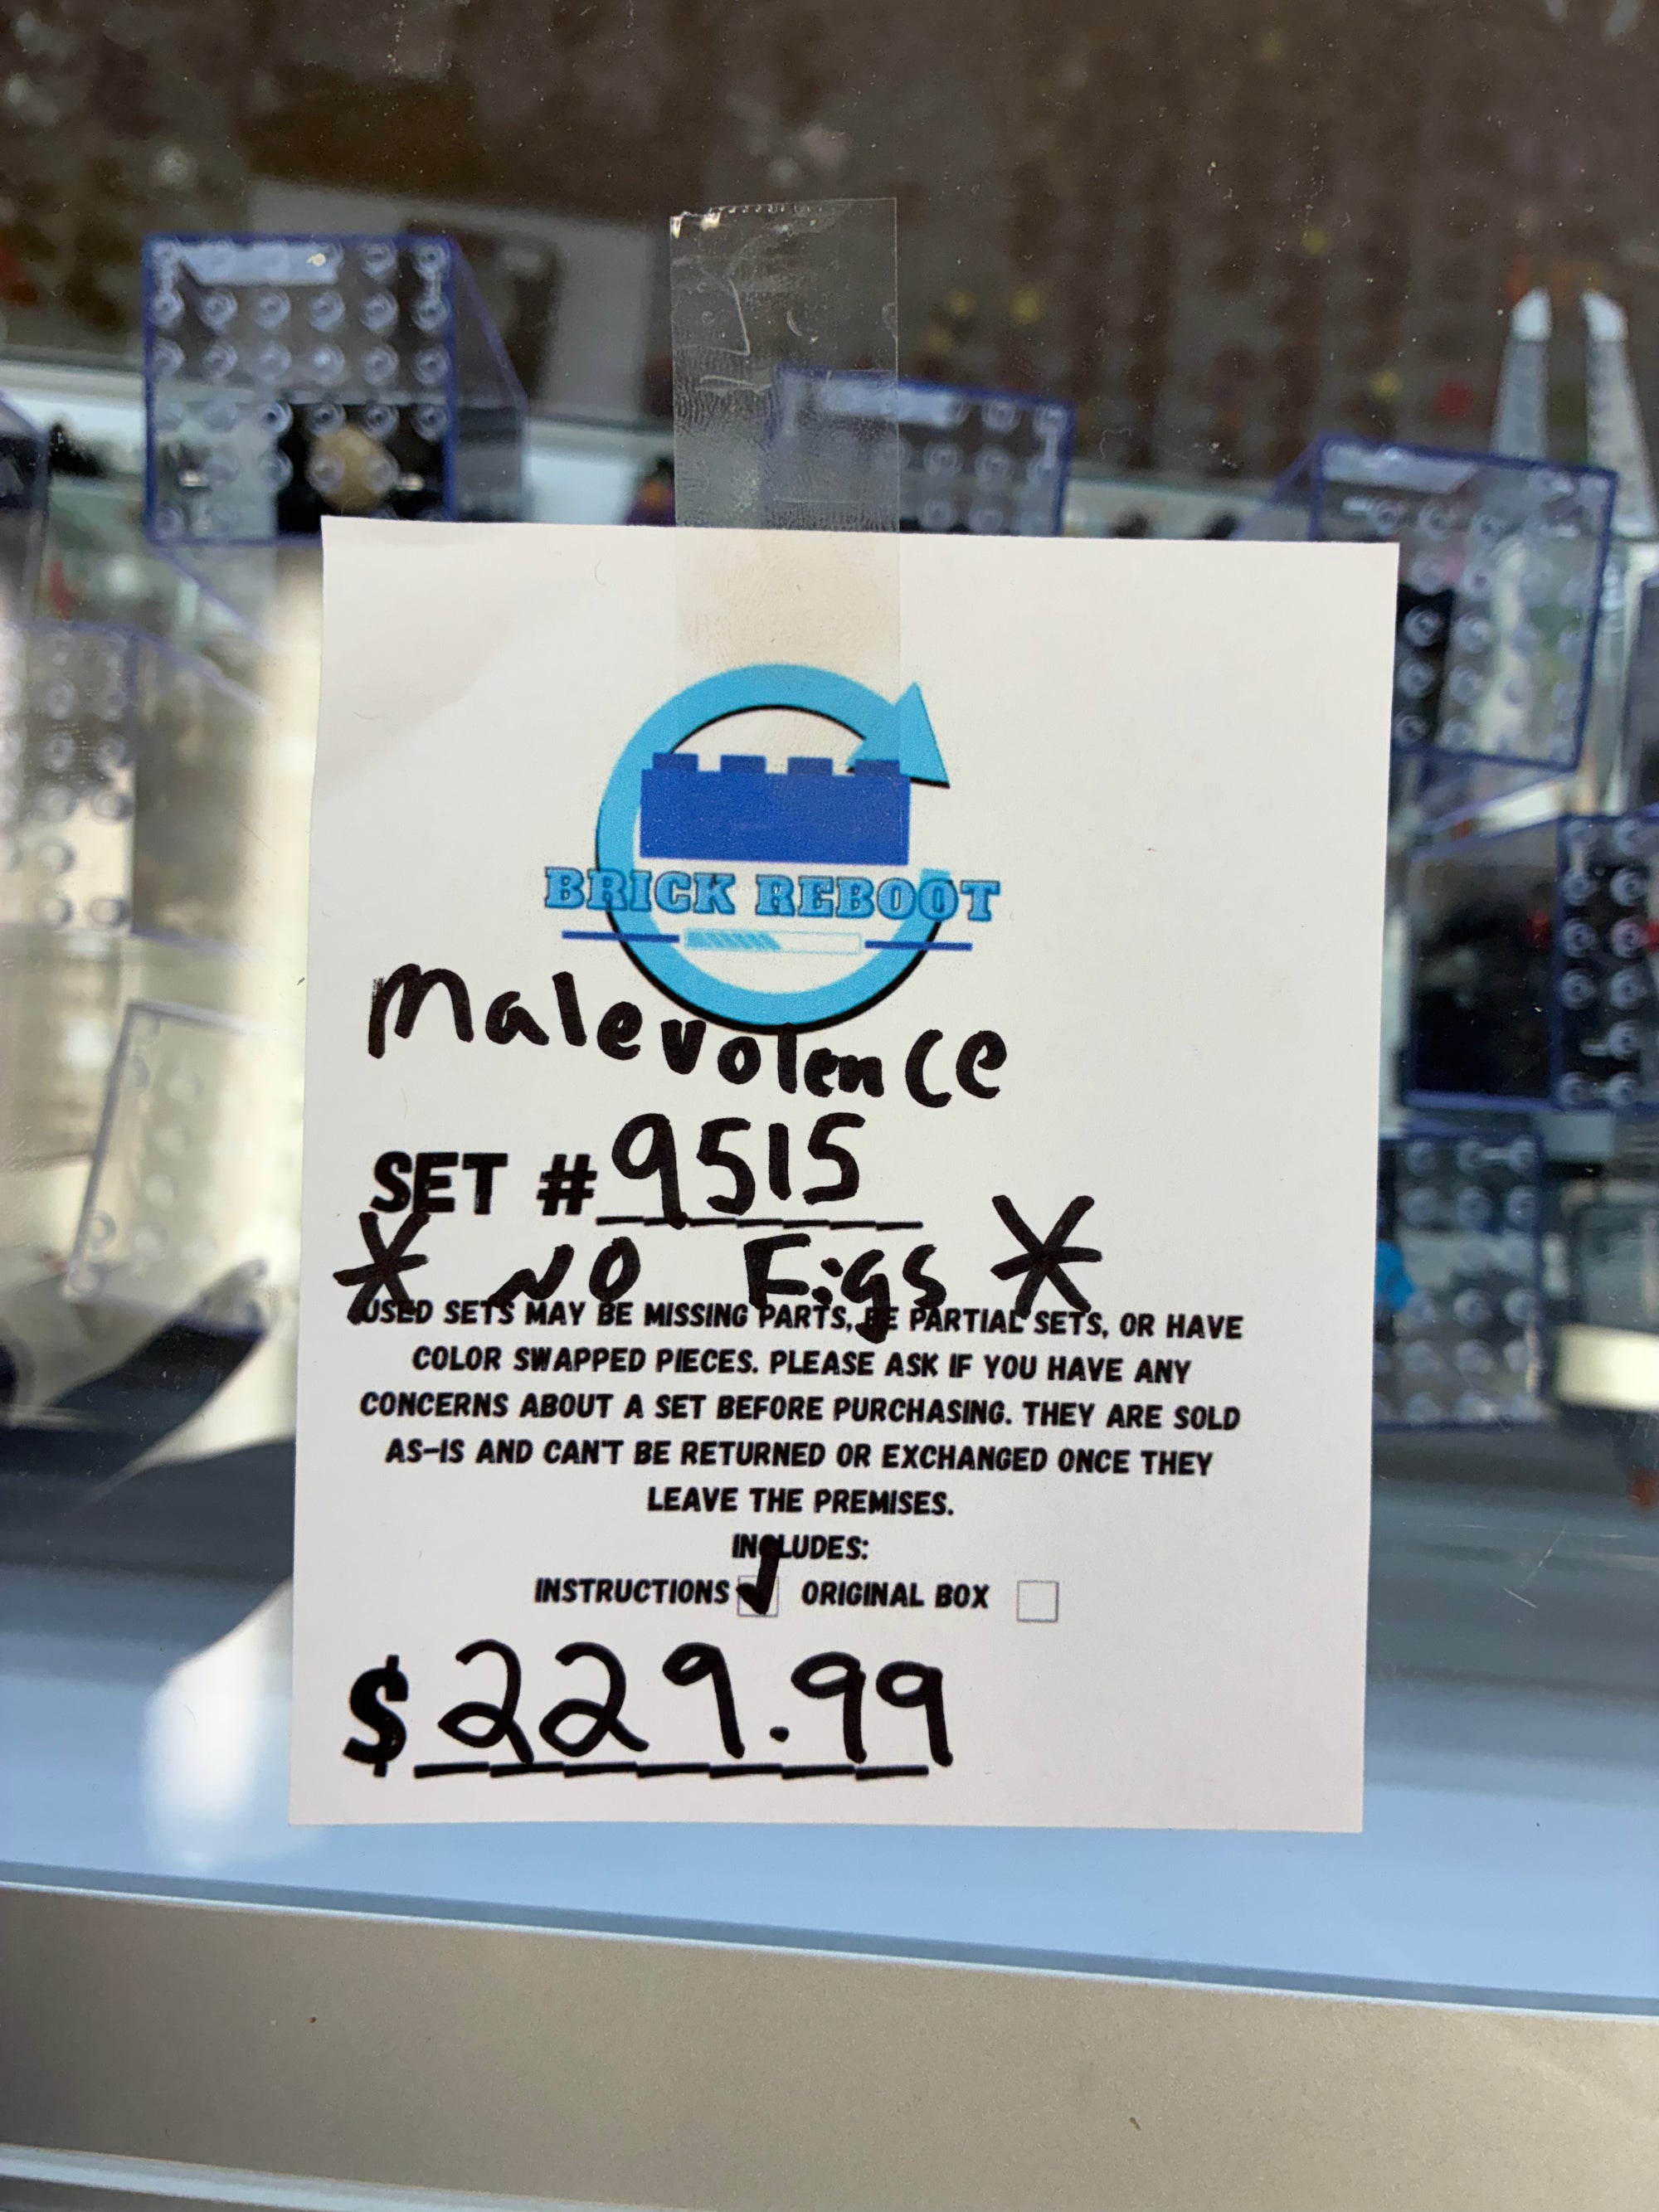 BRICK REBOOT
Malevolence
SET #9515
* NO Figs *
USED SETS MAY BE MISSING PARTS, BE PARTIAL SETS, OR HAVE
COLOR SWAPPED PIECES. PLEASE ASK IF YOU HAVE ANY
CONCERNS ABOUT A SET BEFORE PURCHASING. THEY ARE SOLD
AS-IS AND CAN'T BE RETURNED OR EXCHANGED ONCE THEY
LEAVE THE PREMISES.
INCLUDES:
INSTRUCTIONS ✓ ORIGINAL BOX
$229.99